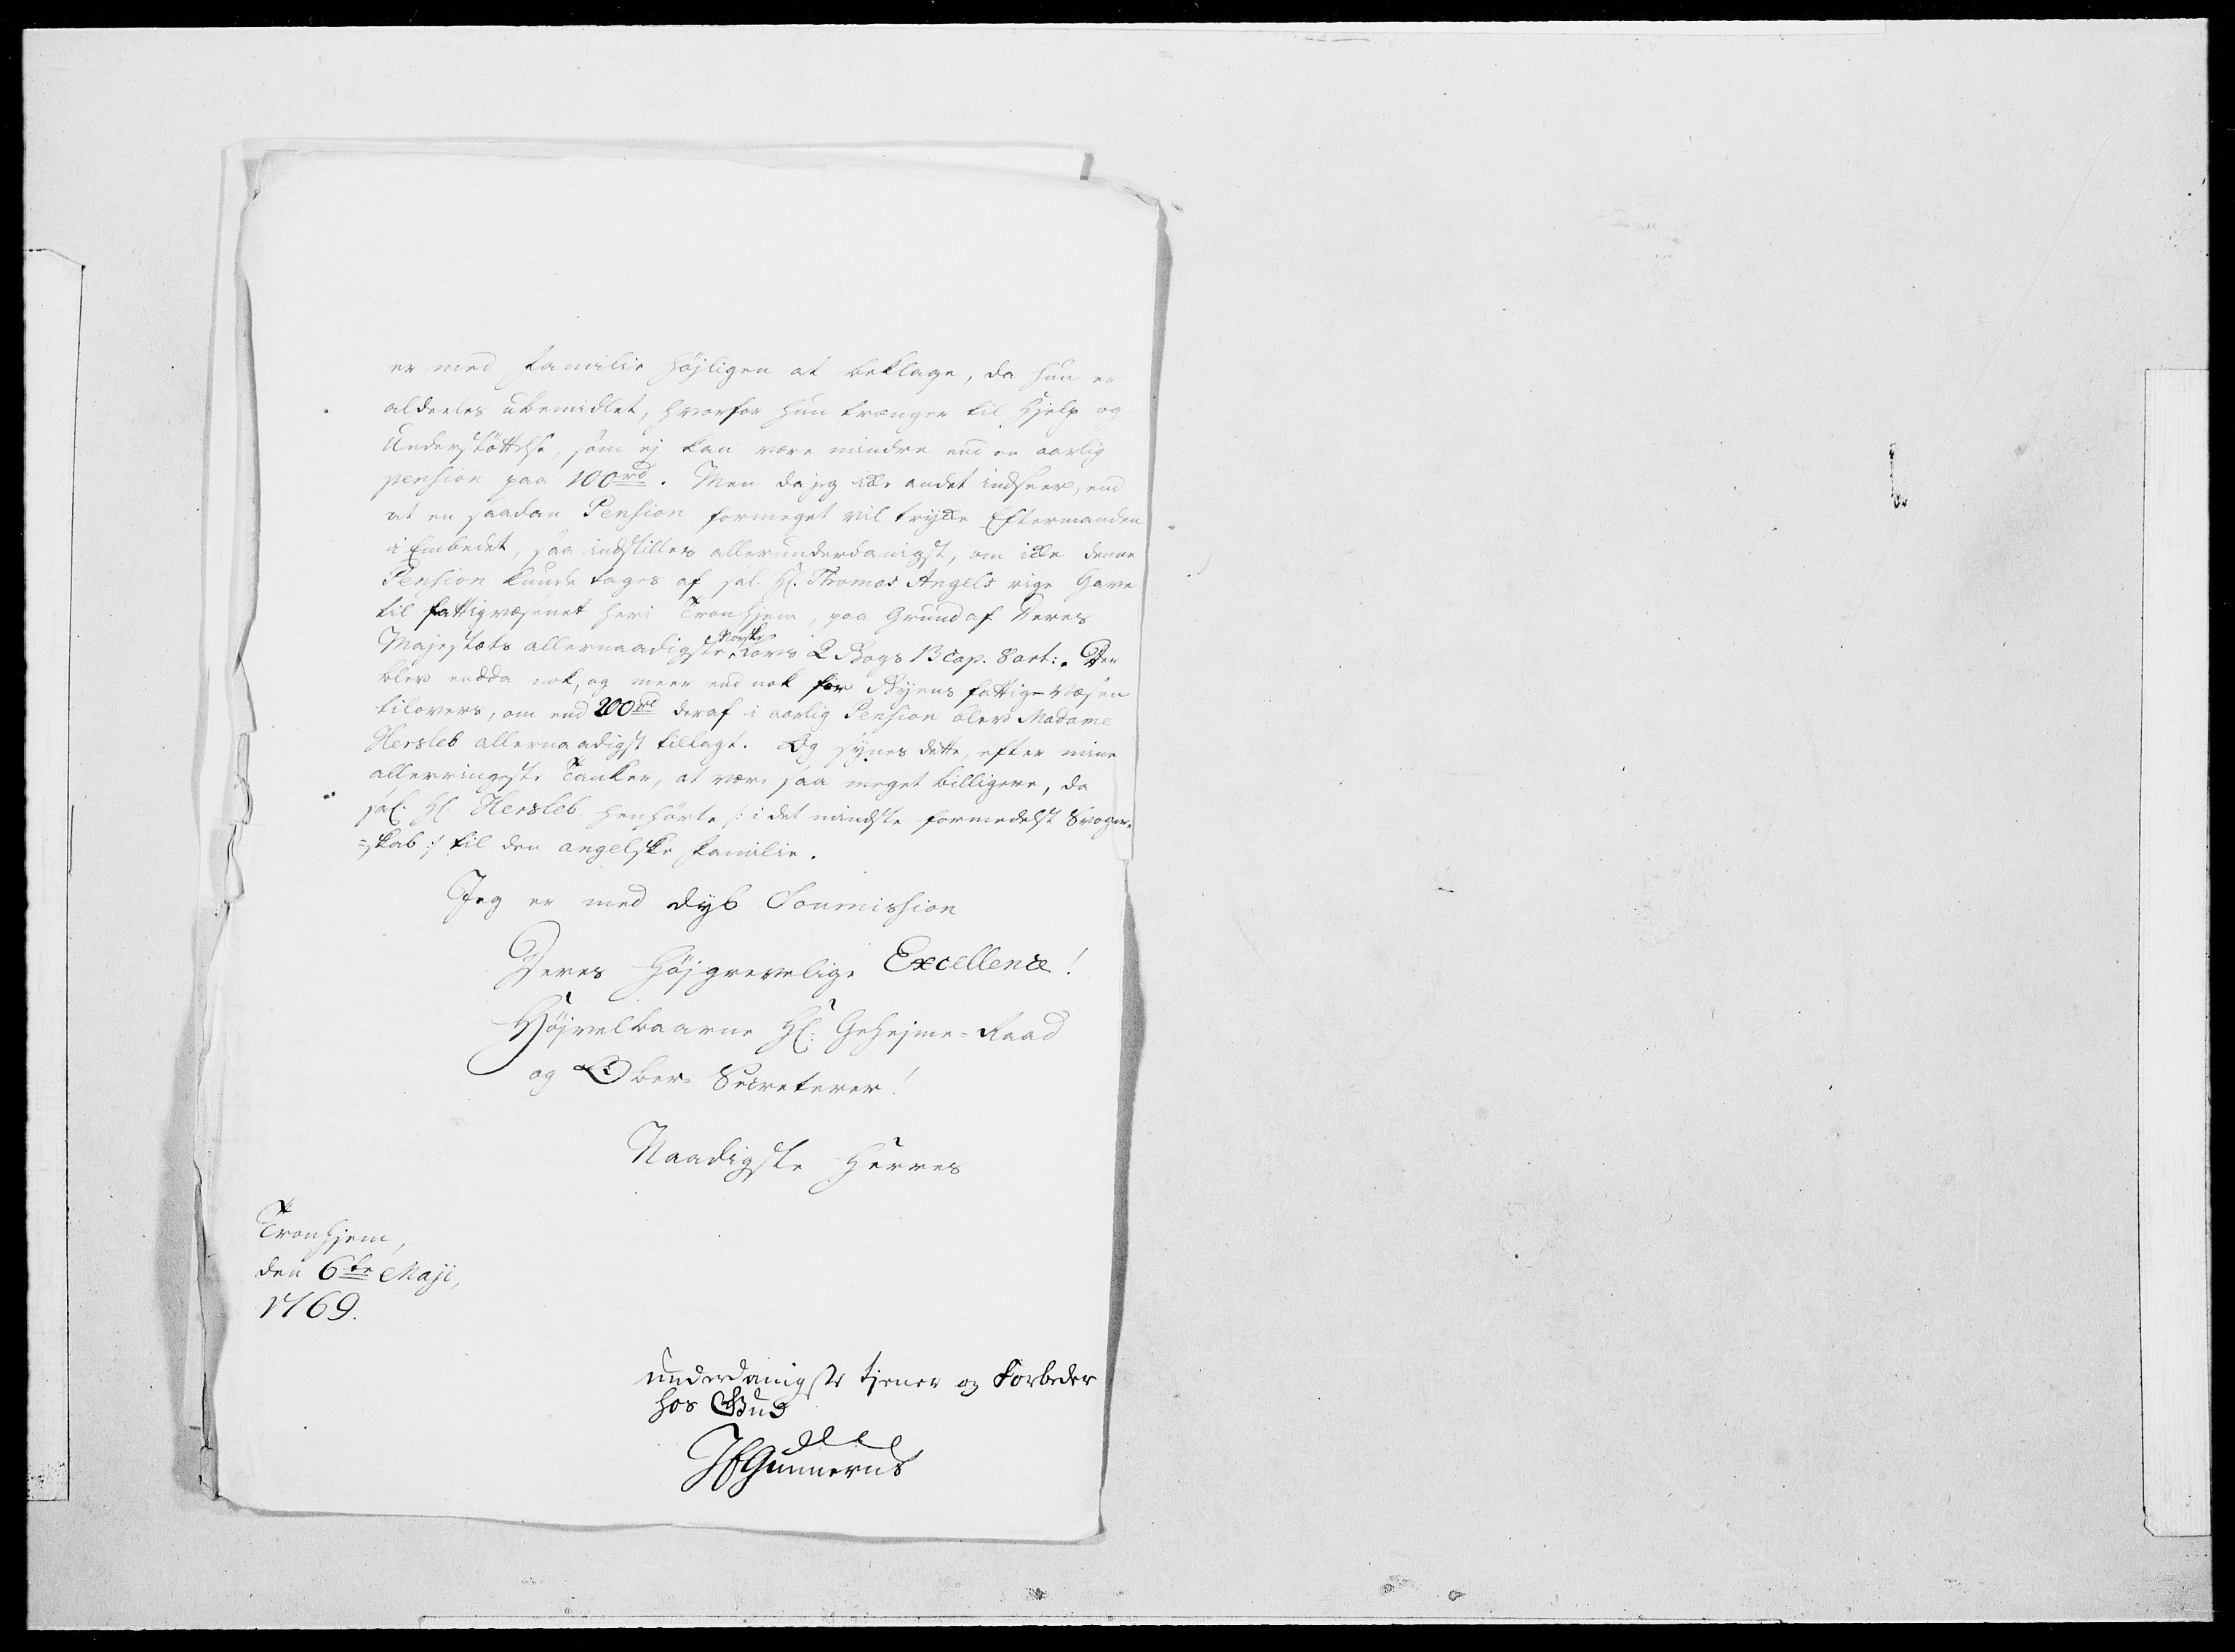 er med Familie højligen at beklage, da hun er
aldeeles ubemidlet, hvorfor hun trænger til Hjelp og
Understøttelse, som ej kan være mindre end en aarlig
pension paa 100rd. Men da jeg icke andet indseer, end
at en saadan Pension formeget vil trycke Eftermanden
i Embedet, saa indstilles allerunderdanigst, om icke denne
Pension kunde tages af sal. Hr. Thomas Angels rige Gave
til Fattigvæsenet heri Tronhjem, paa Grund af Deres
Majestæts allernaadigste Norske Lovs 2 Bogs 13 cap. 8 art:. Der
blev endda nok, og meer end nok for Byens fattig-Væsen
tilovers, om end 200rd deraf i aarlig Pension blev Madame
Hersleb allernaadigst tillagt. Og synes dette, efter mine
allerringeste Tanker, at være saa meget billigere, da
sal. Hr. Hersleb henhørte /: i det mindste formedelst Svoger-
=skab :/ til den angelske Familie.
Jeg er med dyb Soumission
Deres Højgrevelige Excellence!
Højvelbaarne Hr. Geheime-Raad
og Ober-Secreterer!
Naadigste Herres
Tronhjem,
den 6te Maji,
1769.
underdanigste tjener og Forbeder
hos Gud
JEGunnerus